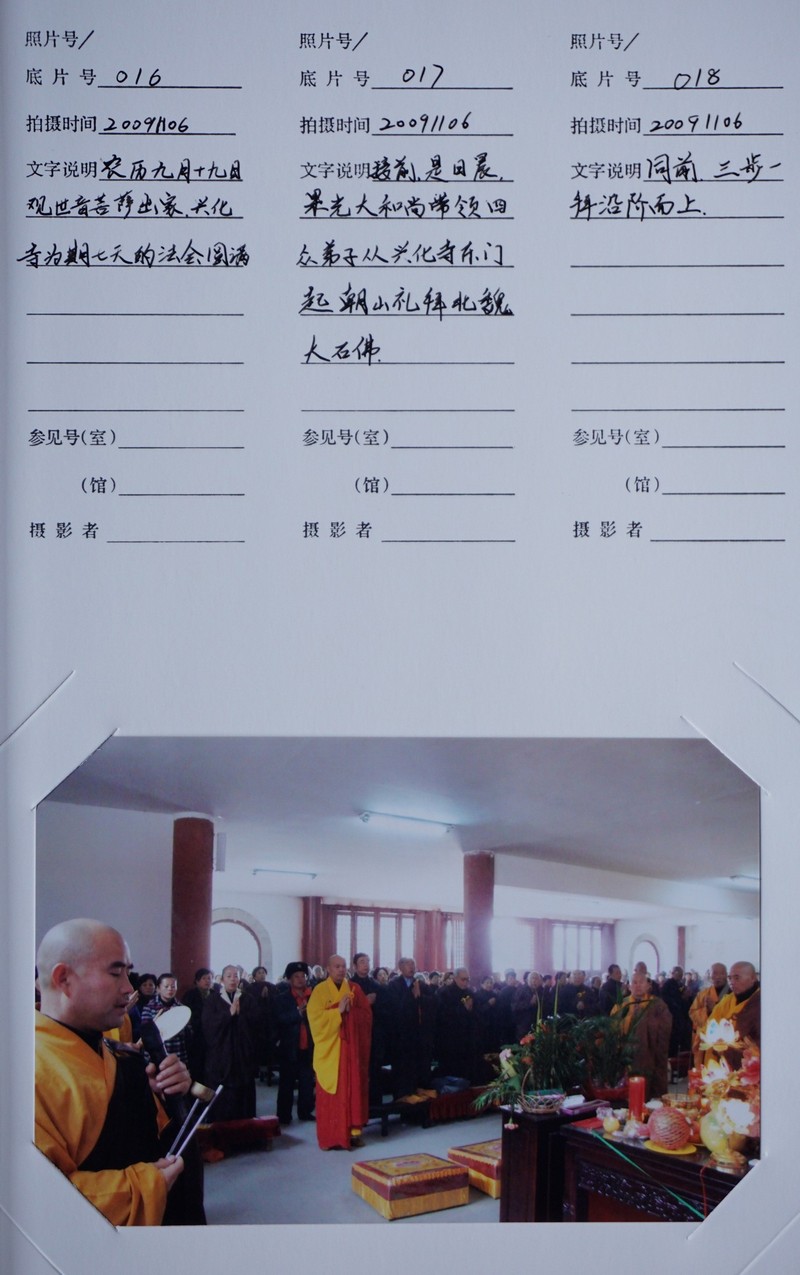 照片号/
底片号 016
拍摄时间 20091106
文字说明 农历九月十九日
观世音菩萨出家,兴化
寺为期七天的法会圆满
参见号(室)
(馆)
摄影者
照片号/
底片号 017
拍摄时间 20091106
文字说明 接前,是日晨,
果光大和尚带领四
众弟子从兴化寺东门
起朝山礼拜北魏
大石佛.
参见号(室)
(馆)
摄影者
照片号/
底片号 018
拍摄时间 20091106
文字说明 同前,三步一
拜沿阶而上.
参见号(室)
(馆)
摄影者